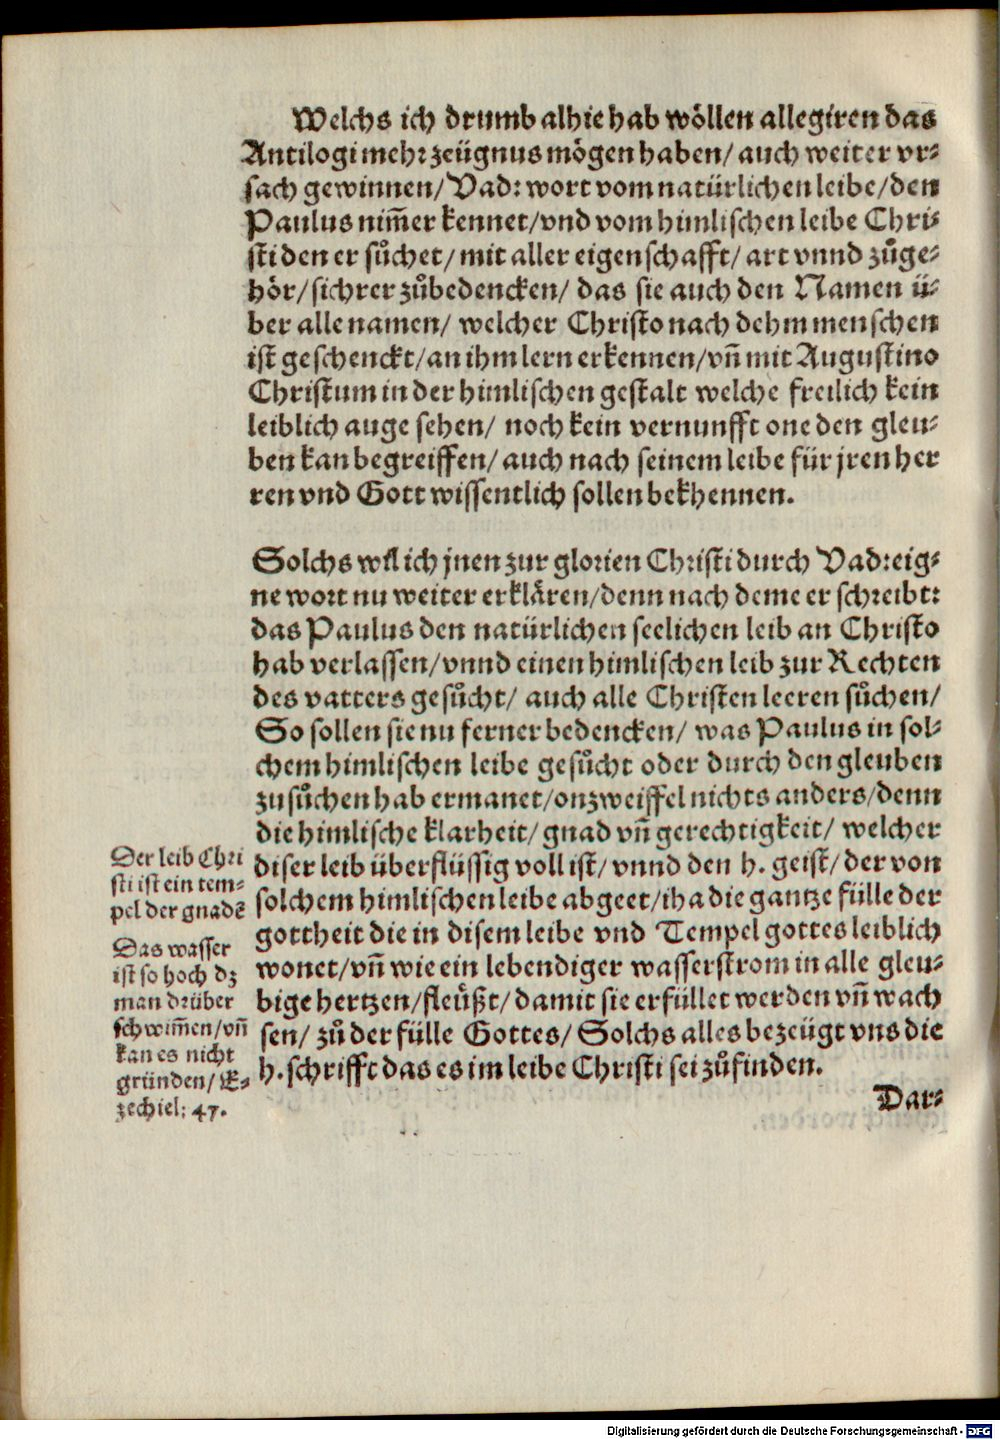 Welchs ich drumb alhie hab wöllen allegiren das
Antilogi mehr zeügnus mögen haben/ auch weiter vr⸗
sach gewinnen/ Vad: wort vom natürlichen leibe/ den
Paulus nim̃er kennet/ vnd vom himlischen leibe Chri⸗
sti den er sůchet/ mit aller eigenschafft/ art vnnd zůge⸗
hör/ sichrer zůbedencken/ das sie auch den Namen ü⸗
ber alle namen/ welcher Christo nach dehm menschen
ist geschenckt/ an ihm lern erkennen/ vñ mit Augustino
Christum in der himlischen gestalt welche freilich kein
leiblich auge sehen/ noch kein vernunfft one den gleu⸗
ben kan begreiffen/ auch nach seinem leibe für jren her
ren vnd Gott wissentlich sollen bekhennen.
Solchs will ich jnen zur glorien Christi durch Vad: eig⸗
ne wort nu weiter erklären/ denn nach deme er schreibt:
das Paulus den natürlichen seelichen leib an Christo
hab verlassen/ vnnd einen himlischen leib zur Rechten
des vatters gesůcht/ auch alle Christen leeren sůchen/
So sollen sie nu ferner bedencken/ was Paulus in sol⸗
chem himlischen leibe gesůcht oder durch den gleuben
zu sůchen hab ermanet/ onzweiffel nichts anders/ denn
die himlische klarheit/ gnad vñ gerechtigkeit/ welcher
diser leib überflüssig voll ist/ vnnd den h. geist/ der von
solchem himlischen leibe abgeet/ iha die gantze fülle der
gottheit die in disem leibe vnd Tempel gottes leiblich
wonet/ vñ wie ein lebendiger wasserstrom in alle gleu⸗
bige hertzen/ fleüßt/ damit sie erfüllet werden vñ wach
sen/ zů der fülle Gottes/ Solchs alles bezeügt vns die
h. schrifft das es im leibe Christi sei zůfinden.
Dar⸗
Der leib Chri
sti ist ein tem⸗
pel der gnadẽ
Das wasser
ist so hoch dz
man drüber
schwim̃en/ vñ
kan es nicht
gründen/ E⸗
zechiel: 47.
Digitalisierung gefördert durch die Deutsche Forschungsgemeinschaft - DFG